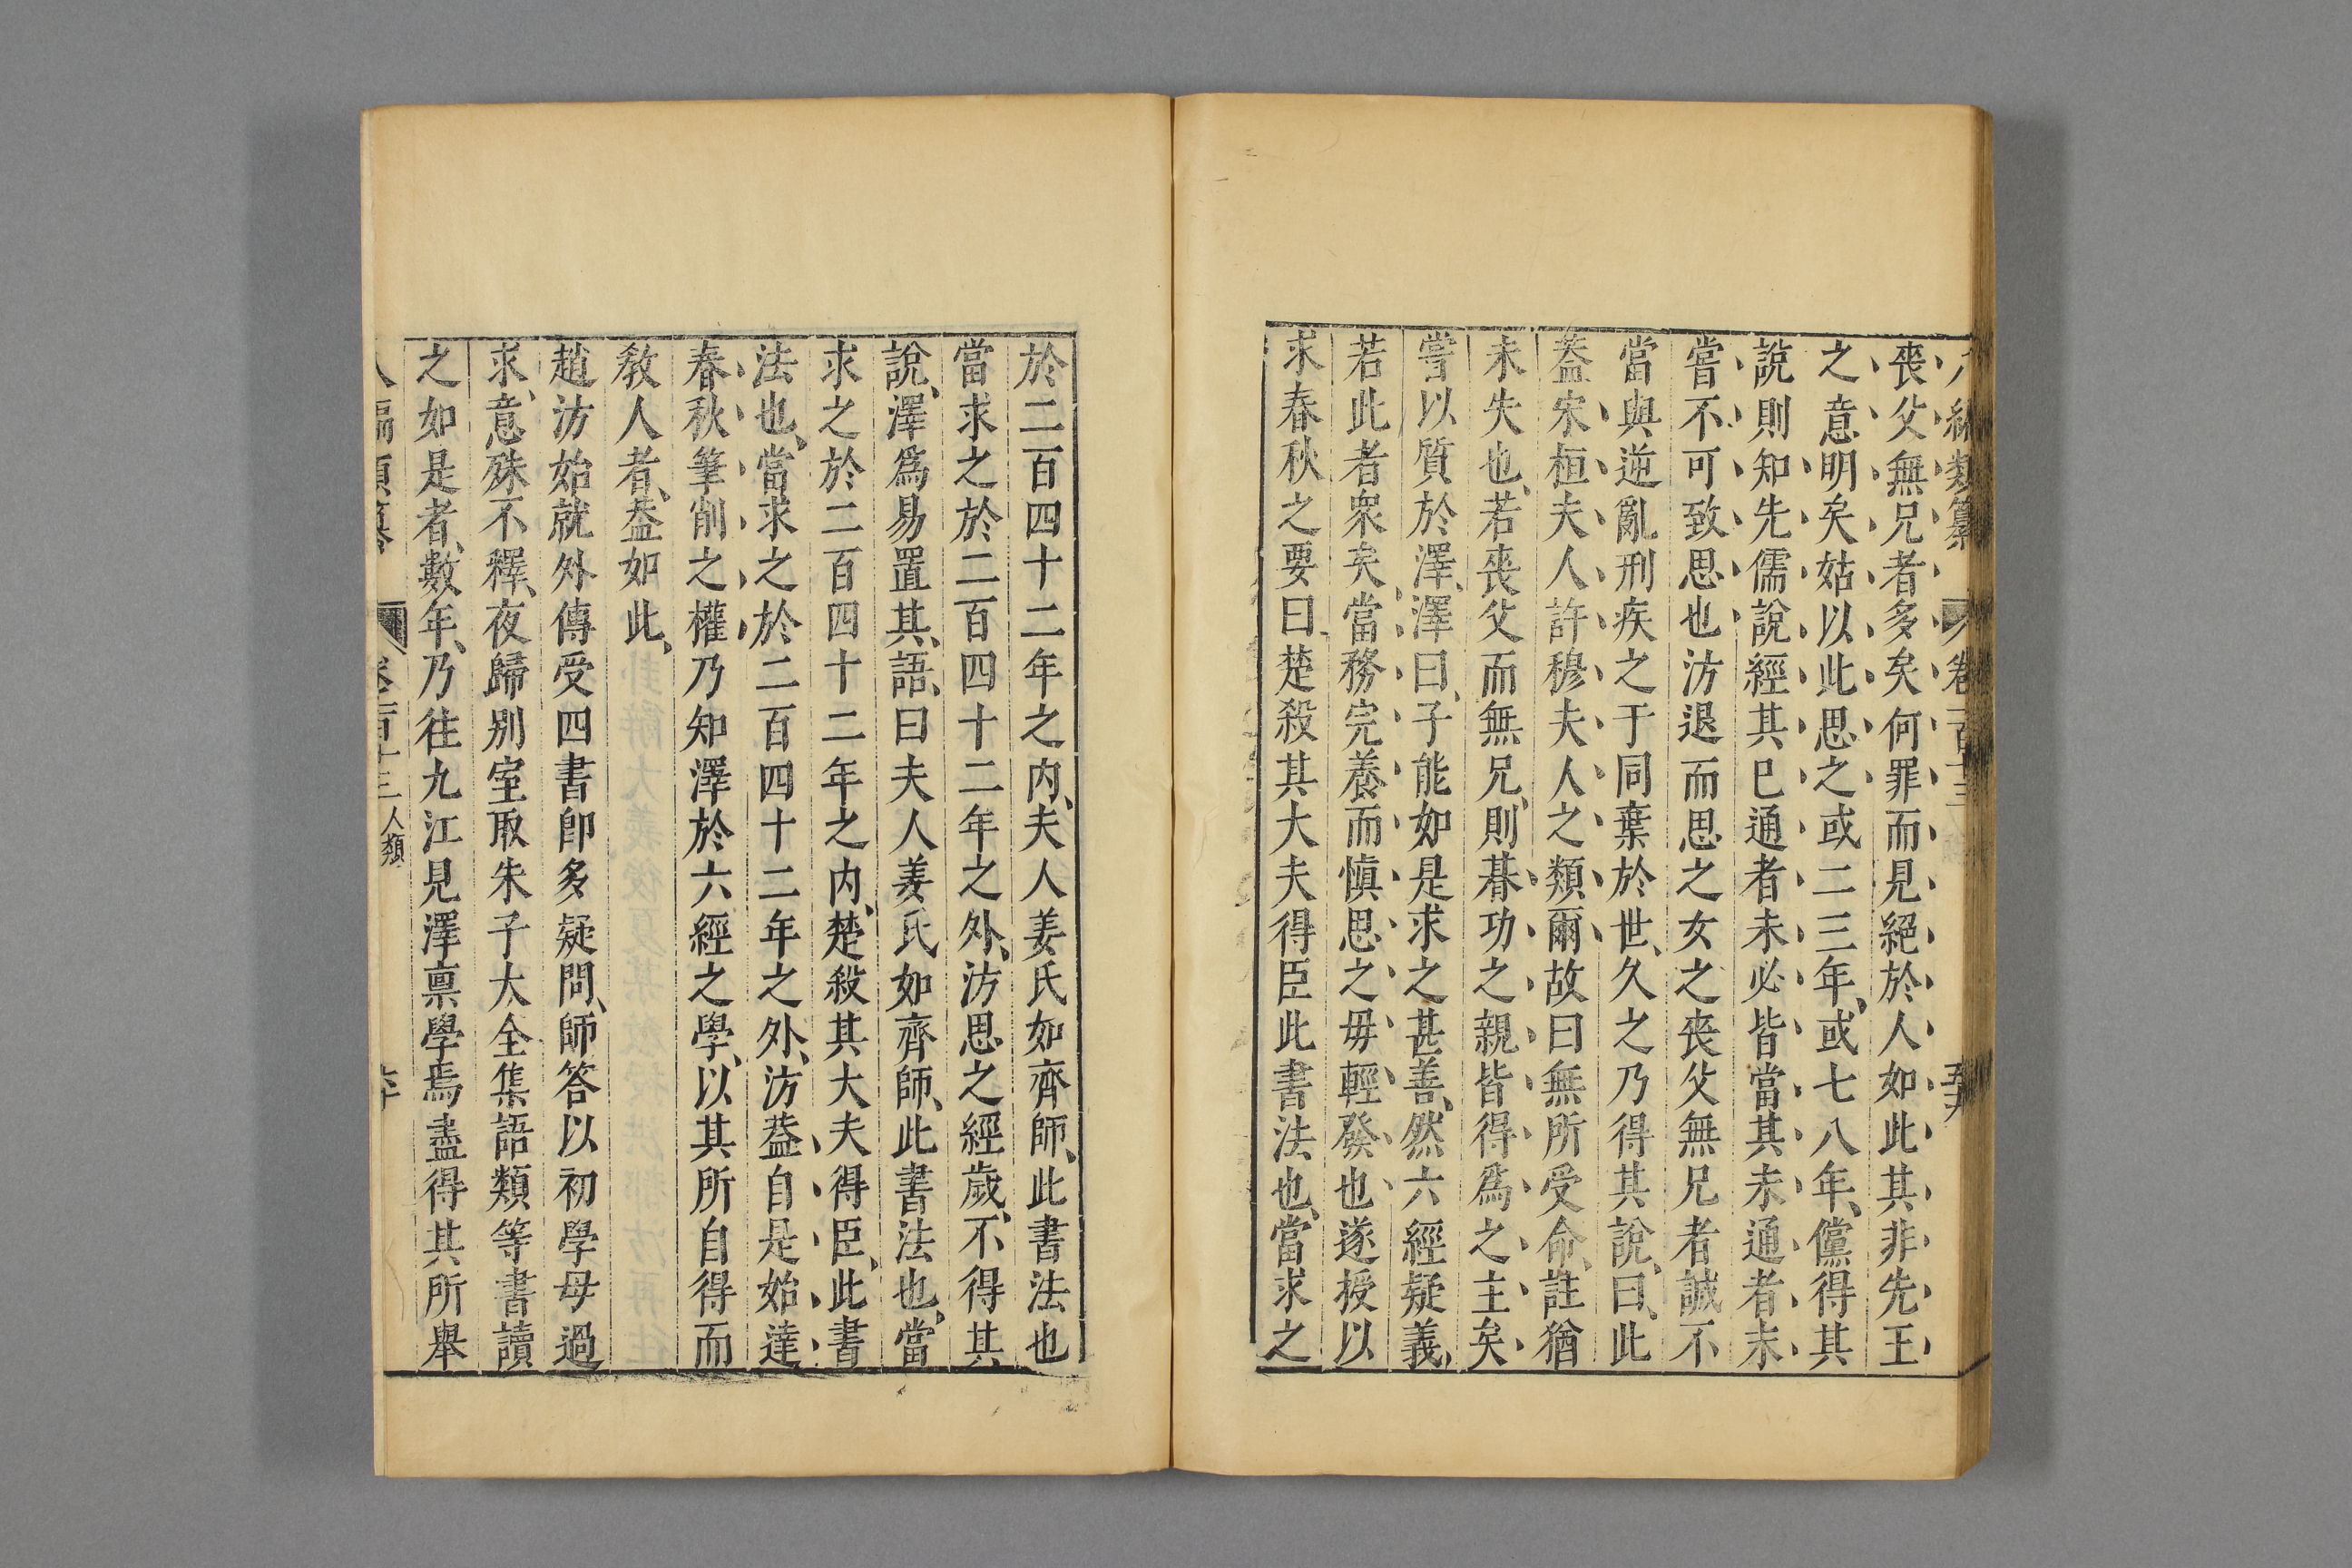 喪父無兄者多矣何罪而見絕於人如此其非先王
之意明矣姑以此思之或二三年、或七八年、儻得其
說則知先儒說經其已通者未必皆當其未通者未
嘗不可致思也汸退而思之女之喪父無兄者誠不
當與逆亂刑疾之于同棄於世、久之乃得其說、曰、此
葢宋桓夫人許穆夫人之類爾故曰無所受命、註猶
未失也、若喪父而無兄、則朞功之親皆得爲之主矣
嘗以質於澤、澤曰、子能如是求之甚善、然六經疑義、
若此者衆矣、當務完養而慎思之毋輕發也遂授以
求春秋之要曰楚殺其大夫得臣此書法也、當求之
於二百四十二年之内、夫人姜氏如齊師、此書法也
當求之於二百四十二年之外、汸思之經歲、不得其
說、澤爲易置其、語、曰夫人姜氏如齊師、此書法也、當
求之於二百四十二年之内、楚殺其大夫得臣、此書
法也、當求之於二百四十二年之外、汸葢自是始達
春秋筆削之權乃知澤於六經之學、以其所自得而
敎人者、葢如此、
趙汸始就外傳受四書卽多疑問、師答以初學毋過
求、意殊不釋、夜歸别室取朱子大全集語類等書讀
之如是者、數年、乃往九江見澤禀學焉盡得其所舉
人類